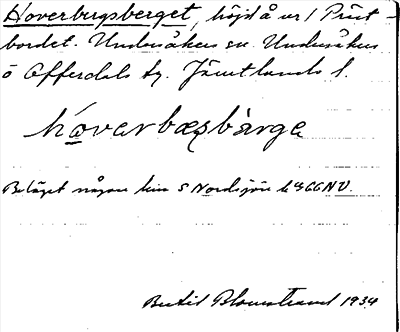 Hoverbergsberget, höjd å er / Präst-
bordet. Undersåkers sn. Undersåkers
o Offerdals tg. Jämtlands l.
hóvarbæsbàrge
Beläget någon km S Nordsjön
Bertil Blomstrand 1934